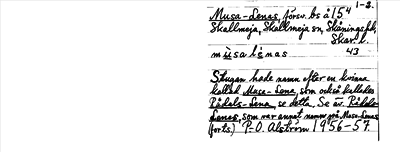 1-2.
Musa-Lenas, försv. bs å 15⁴
Skallmeja, Skallmeja sn, Skånings hd,
Skar. l.
mùsa lénas 43
Stugan hade namn efter en kvinna
kallad Musa-Lena, som också kallades
Rådals-Lena, se detta. Se äv. Rådals-
Lenas, som var annat namn på Musa-Lenas.
(forts.) P-O. Alström 1956-57.